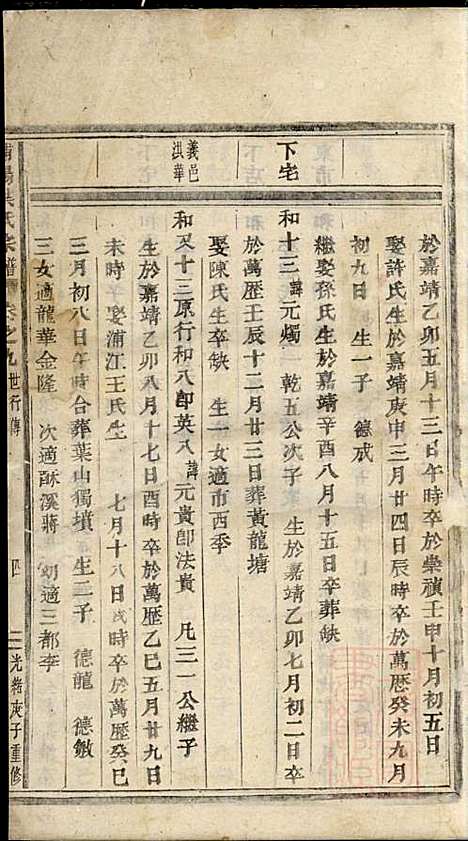 於嘉靖乙卯五月十三日午時卒於崇禎壬申十月初五日
娶許氏生於嘉靖庚申三月廿四日辰時卒於萬歷癸未九月
初九日 生一子 德戒
繼娶孫氏生於嘉靖辛酉八月十五日卒葬缺
下宅
和十三諱元燭 乾五公次子 生於嘉靖乙卯七月初二日卒
於萬歷壬辰十二月廿三日葬黃龍塘
娶陳氏生卒缺 生一女適市西季
義邑
洪華
和又十三原行和八郎英八諱元貴郎法貴 凡三一公繼子
生於嘉靖乙卯八月十七日酉時卒於萬歷乙巳五月廿九日
未時 娶浦江王氏生 七月十八日戌時卒於萬歷癸巳
三月初八日午時合葬葉山獨墳 生二子 德龍 德敏
三女適龍華金隆 次適酥溪蔣 幼適三都李
氏宗譜 卷之九 世行傳 四 光緒庚子重修